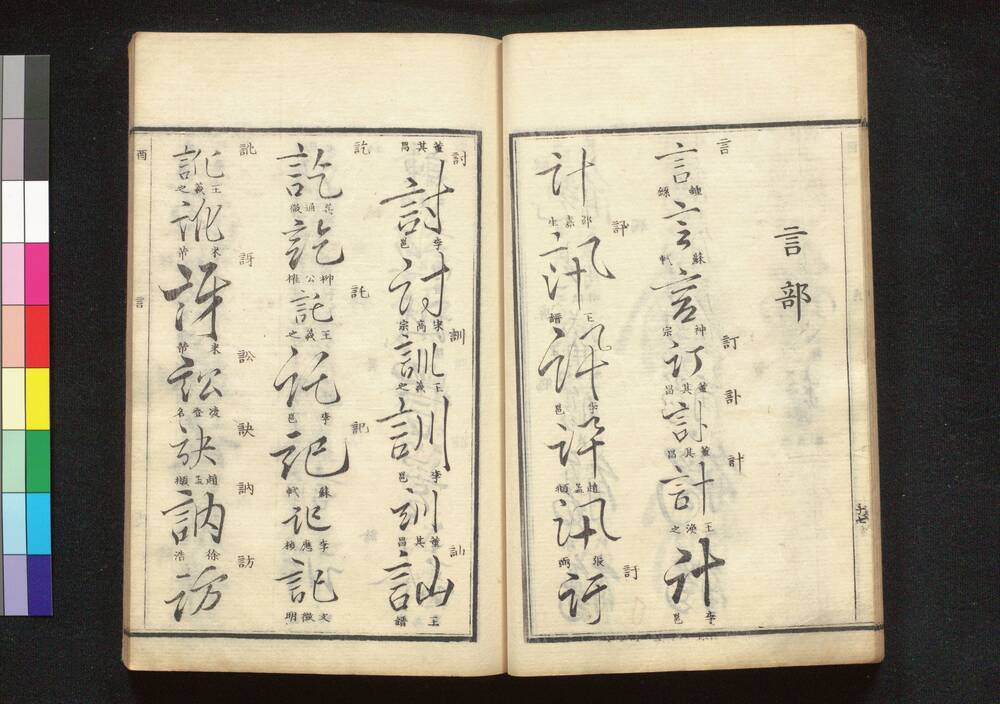 言部
言
言
鍾繇
言
蘇軾
言
神宗
訂
訂
董其昌
訃
訃
董其昌
計
計
王渙之
計
李邕
計
邵嘉
訊
訊
王譜
訊
李邕
訊
趙孟頫
訊
張雨
訏
訏
討
董其昌
討
李邕
討
宋高宗
訓
訓
王羲之
訓
李邕
訓
董其昌
訕
訕
王譜
訖
訖
訖
柳公權
託
託
王羲之
託
李邕
記
記
蘇軾
記
李應禎
記
文徵明
訛
訛
王羲之
訛
米芾
訝
訝
米芾
訟
訟
凌登名
訣
訣
趙孟頫
訥
訥
徐浩
訪
訪
酉
言